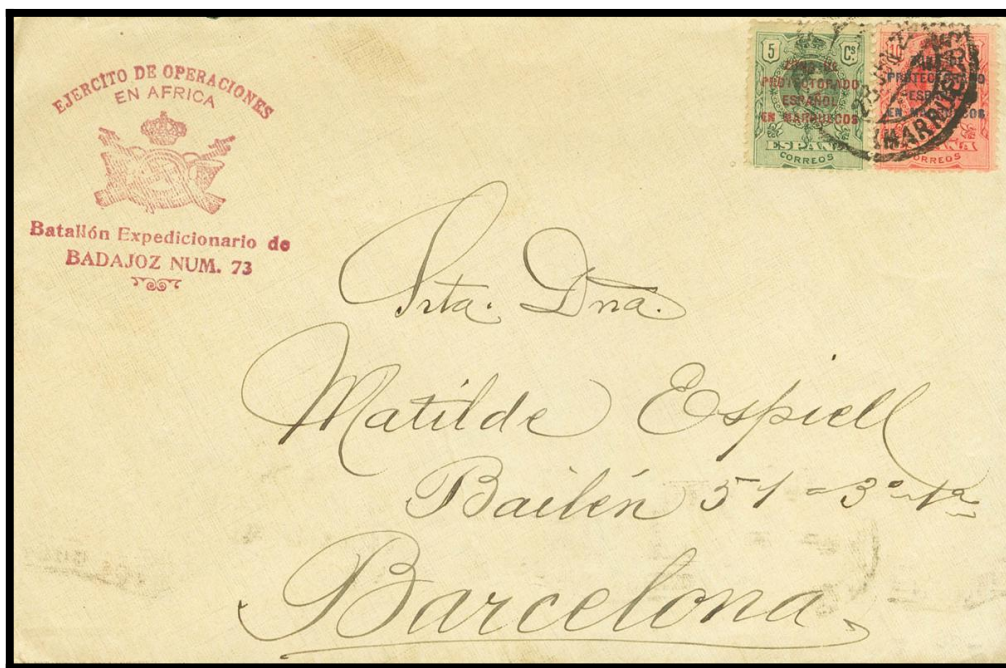 EJERCITO DE OPERACIONES
EN AFRICA
Batallón Expedicionario de
BADAJOZ NUM. 73
5 Cs
PROTECTORADO
ESPAÑOL
EN MARRUECOS
ESPAÑA
CORREOS
10
PROTECTORADO
ESPAÑOL
EN MARRUECOS
CORREOS
(MARRUECOS)
Srta. Dna.
Matilde Espiell
Bailén 51-3º-1ª
Barcelona